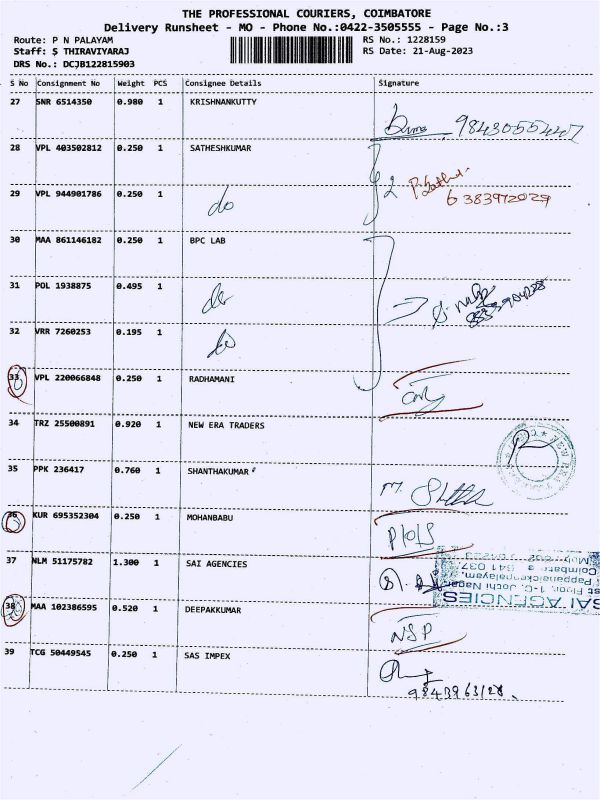 THE PROFESSIONAL COURIERS, COIMBATORE
Delivery Runsheet - MO - Phone No.:0422-3505555 - Page No.:3
Route: P N PALAYAM RS No.: 1228159
Staff: S THIRAVIYARAJ RS Date: 21-Aug-2023
DRS No.: DCJB122815903
S No Consignment No Weight PCS Consignee Details Signature
27 SNR 6514350 0.980 1 KRISHNANKUTTY
28 VPL 403502812 0.250 1 SATHESHKUMAR
2
29 VPL 944901786 0.250 1 do 6383972029
30 MAA 861146182 0.250 1 BPC LAB
31 POL 1938875 0.495 1 do
32 VRR 7260253 0.195 1 do
33 VPL 220066848 0.250 1 RADHAMANI
34 TRZ 25500891 0.920 1 NEW ERA TRADERS
35 PPK 236417 0.760 1 SHANTHAKUMAR
M.
36 KUR 695352304 0.250 1 MOHANBABU
37 NLM 51175782 1.300 1 SAI AGENCIES
SAI AGENCIES
Pappanaickenpalayam,
38 MAA 102386595 0.520 1 DEEPAKKUMAR
NSP
39 TCG 50449545 0.250 1 SAS IMPEX
9843963128